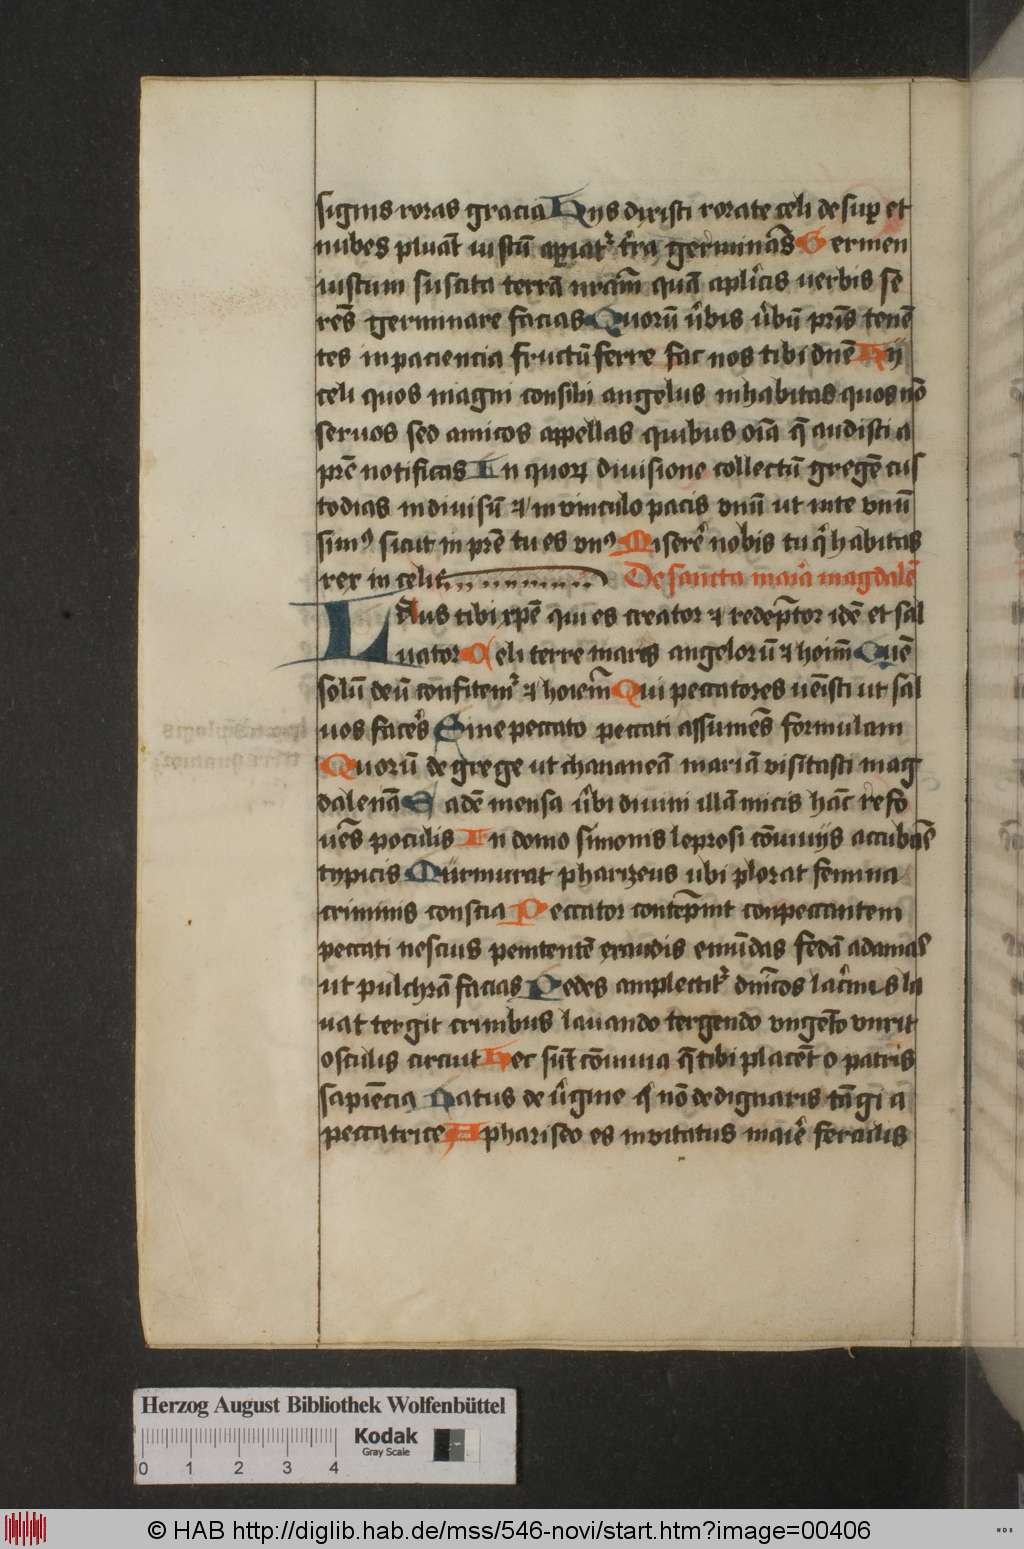 signis roras gracia Hijs dixisti rorate celi desup̱ et
nubes pluāt iustū ap̱iat᷒ t̄ra germinās Germen
iustum suscita terrā nrām̄ quā aplīcis verbis se
rēs germinare facias Quorū v̄bis v̄bū pr̄is tenē
tes in paciencia fructū ferre fac nos tibi dn̄e Hij
celi quos magni consilii angelus inhabitas quos nō
seruos sed amicos appellas quibus oīa q̄ audisti a
pr̄e notificas In quoꝝ diuisione collectū gregē cus
todias indiuisū ⁊ in vinculo pacis vnū ut in te vnū
simꝰ sicut in pr̄e tu es vnꝰ Miserē nobis tu q̄ habitas
rex in celis De sancta maīa magdalē
Laus tibi xp̄e qui es creator ⁊ redēptor idē et sal
uator Celi terre maris angelorū ⁊ hoīm̄ Quē
solū deū confitem᷒ ⁊ hoīem̄ Qui peccatores venīsti ut sal
uos facēs Sine peccato peccati assumēs formulam
Quorū de grege ut chananeā mariā visitasti mag
dalenā Eadē mensa v̄bi diuini illā micis hāc refo
uēs poculis In domo simonis leprosi cōuiuijs accubās
typicis Murmurat pharizeus ubi plorat femina
criminis conscia Peccator contēpnit conpeccantem
peccati nescius penitentē exaudis emūdas fedā adamas
ut pulchrā facias Pedes amplectit᷒ dn̄icos lac̄mis la
uat tergit crinibus lauando tergendo vngēto vnxit
osculis circuit Hec sūt cōuiuia q̄ tibi placēt o patris
sapiēcia Natus de v̄gine q̄ nō dedignaris tāgi a
peccatrice A phariseo es inuitatus maīe ferculis
Herzog August Bibliothek Wolfenbüttel
Kodak
Gray Scale
0 1 2 3 4
© HAB http://diglib.hab.de/mss/546-novi/start.htm?image=00406